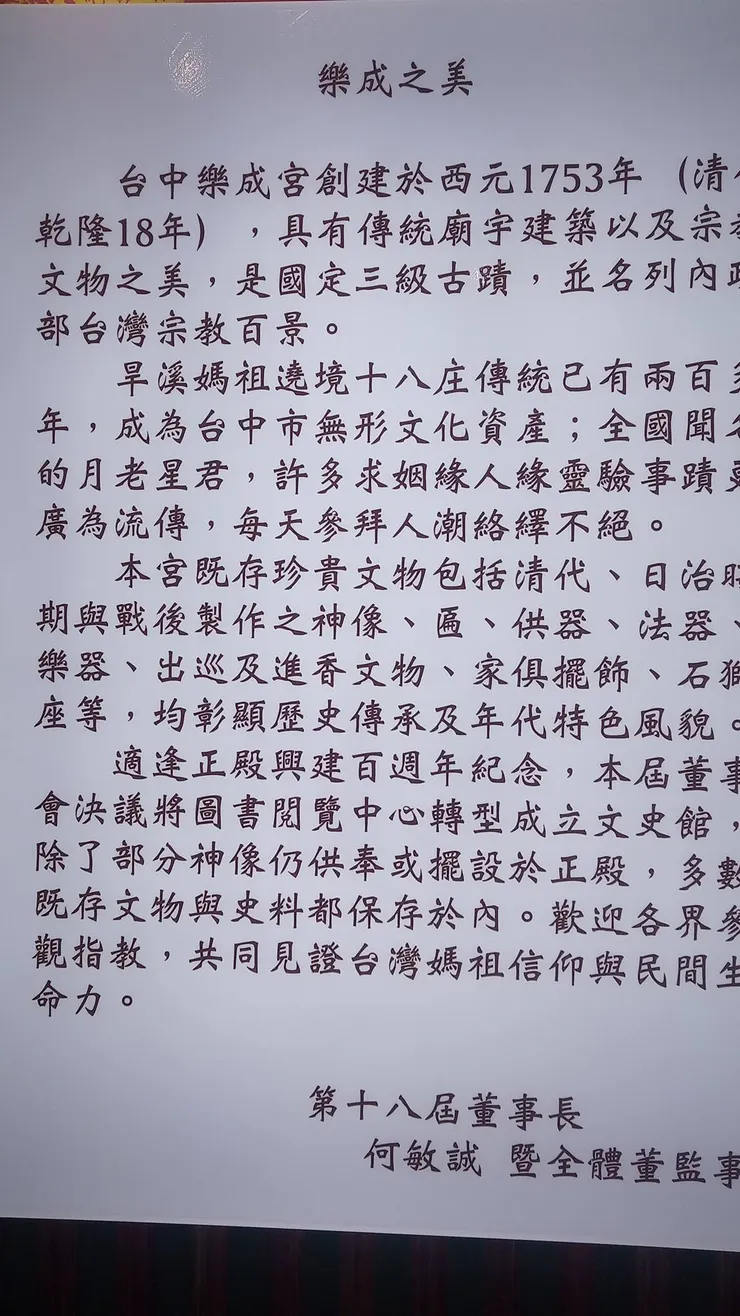 樂成之美
台中樂成宮創建於西元1753年（清
乾隆18年），具有傳統廟宇建築以及宗教
文物之美，是國定三級古蹟，並名列內政
部台灣宗教百景。
旱溪媽祖遶境十八庄傳統已有兩百多
年，成為台中市無形文化資產；全國聞名
的月老星君，許多求姻緣人緣靈驗事蹟更
廣為流傳，每天參拜人潮絡繹不絕。
本宮既存珍貴文物包括清代、日治時
期與戰後製作之神像、匾、供器、法器、
樂器、出巡及進香文物、家俱擺飾、石獅
座等，均彰顯歷史傳承及年代特色風貌。
適逢正殿興建百週年紀念，本屆董事
會決議將圖書閱覽中心轉型成立文史館，
除了部分神像仍供奉或擺設於正殿，多數
既存文物與史料都保存於內。歡迎各界參
觀指教，共同見證台灣媽祖信仰與民間生
命力。
第十八屆董事長
何敏誠 暨全體董監事